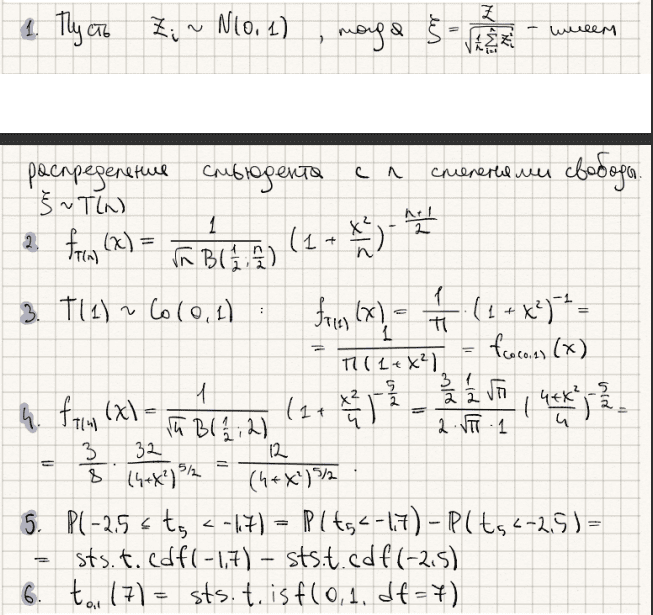 1. Пусть Z_i ~ N(0,1), тогда ξ = Z / √(1/n ∑_{i=1}^{n} Z_i²) – имеет
распределение стьюдента с n степенями свободы.
ξ ~ T(n)
2. f_{T(n)}(x) = 1 / (√n B(1/2; n/2)) (1 + x²/n)^{-(n+1)/2}
3. T(1) ~ Co(0,1) : f_{T(1)}(x) = 1/π · (1 + x²)^{-1} =
= 1 / (π(1 + x²)) = f_{Co(0,1)}(x)
4. f_{T(4)}(x) = 1 / (√4 B(1/2; 2)) (1 + x²/4)^{-5/2} = (3/2 · 1/2 √π) / (2·√π·1) ((4+x²)/4)^{-5/2} =
= 3/8 · 32/(4+x²)^{5/2} = 12/(4+x²)^{5/2} .
5. P(-2,5 ≤ t_5 < -1,7) = P(t_5 < -1,7) – P(t_5 < -2,5) =
= sts.t.cdf(-1,7) – sts.t.cdf(-2,5)
6. t_{0,1}(7) = sts.t.isf(0,1, df=7)